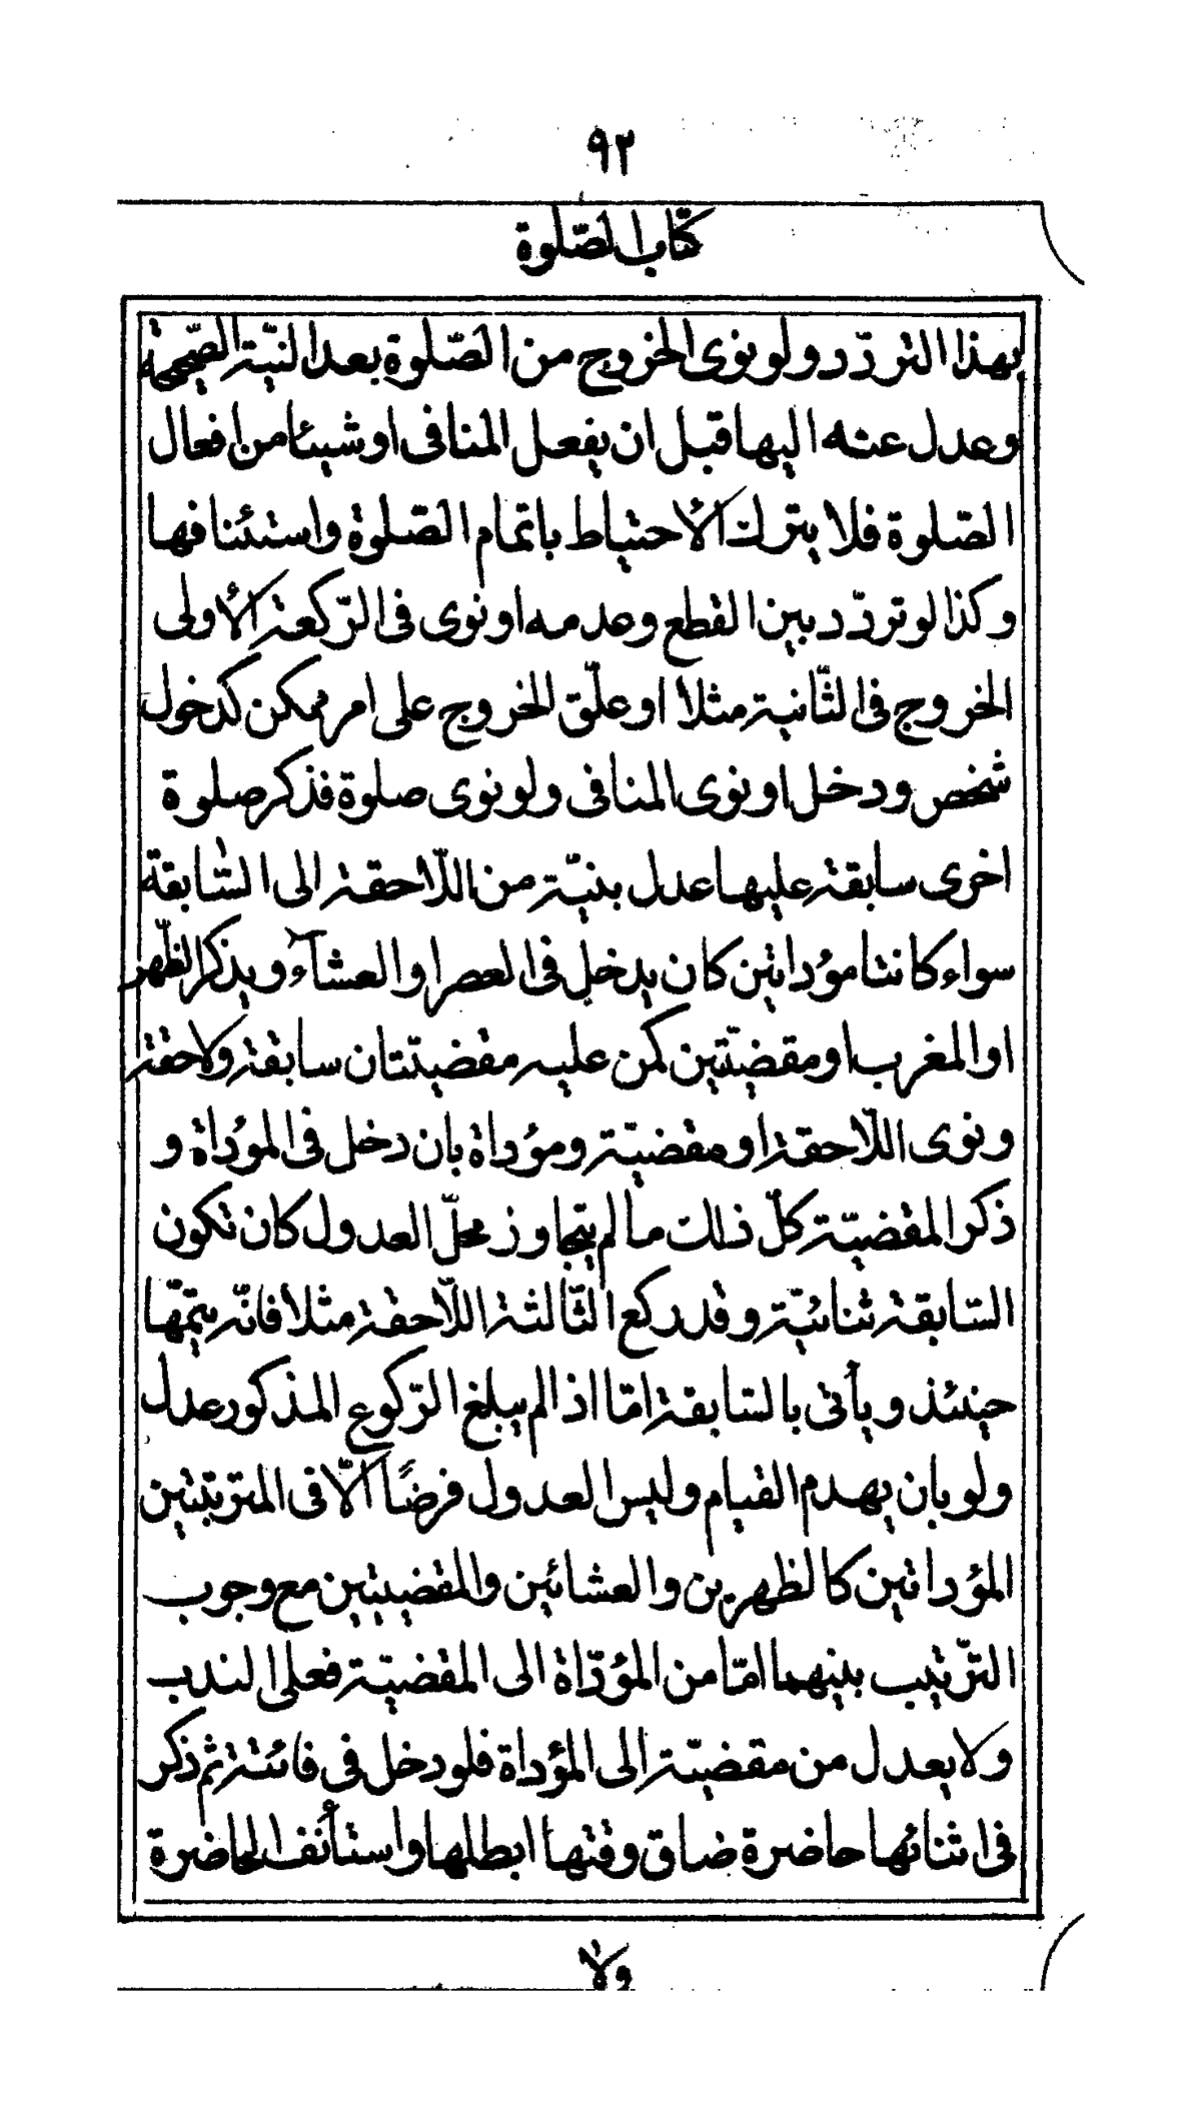 ٩٢
كتاب الصّلوة
بهذا التردّد ولو نوى الخروج من الصّلوة بعد النيّة الصّحيحة
وعدل عنه اليها قبل ان يفعل المنافى او شيئا من افعال
الصّلوة فلا يترك الأحتياط باتمام الصّلوة واستئنافها
وكذا لو تردّد بين القطع وعدمه او نوى فى الرّكعة الأولى
الخروج فى الثّانية مثلا او علّق الخروج على امر ممكن كدخول
شخص ودخل او نوى المنافى ولو نوى صلوة فذكر صلوة
اخرى سابقة عليها عدل بنيّة من اللّاحقة الى السّابقة
سواء كانتا مؤداتين كان يدخل فى العصر او العشآء ويذكر الظّهر
او المغرب او مقضيّتين كمن عليه مقضيتتان سابقة ولاحقة
ونوى اللّاحقة او مقضيّة ومؤداة بان دخل فى المؤداة و
ذكر المقضيّة كلّ ذلك ما لم يتجاوز محلّ العدول كان تكون
السّابقة ثنائيّة وقد ركع الثّالثة اللّاحقة مثلا فانّه يتمّها
حينئذ ويأتى بالسّابقة امّا اذا لم يبلغ الرّكوع المذكور عدل
ولو بان يهدم القيام وليس العدول فرضًا الّا فى المترتبتين
المؤداتين كالظهرين والعشائين والمقضيتين مع وجوب
التّرتيب بينهما امّا من المؤدّاة الى المقضيّة فعلى الندب
ولا يعدل من مقضيّة الى المؤداة فلو دخل فى فائتة ثم ذكر
فى اثنائها حاضرة ضاق وقتها ابطلها واستأنف الحاضرة
ولا